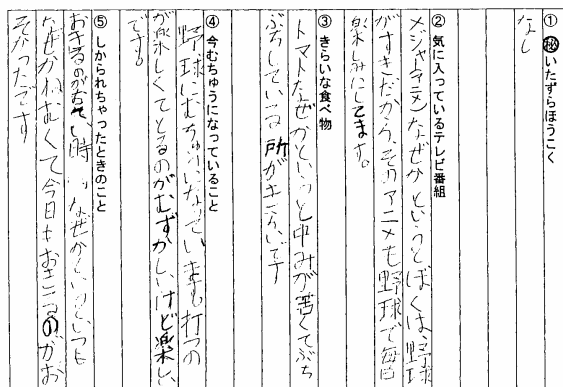 ① ㊙いたずらほうこく
なし
② 気に入っているテレビ番組
メジャーティーン なぜかというとぼくは、野球
がすきだから、そのアニメも野球で毎日
楽しみにしてます。
③ きらいな食べ物
トマトなぜかというと中みが苦くてぶち
ぶちしている所がきらいです
④ 今むちゅうになっていること
野球にむちゅうになっています。打つの
が楽しくてとるのがむずかしいけど楽しい
です。
⑤ しかられちゃったときのこと
おきるのがおそい時 なぜかというといつも
なぜかねむくて今日もおきるのがお
そかったです